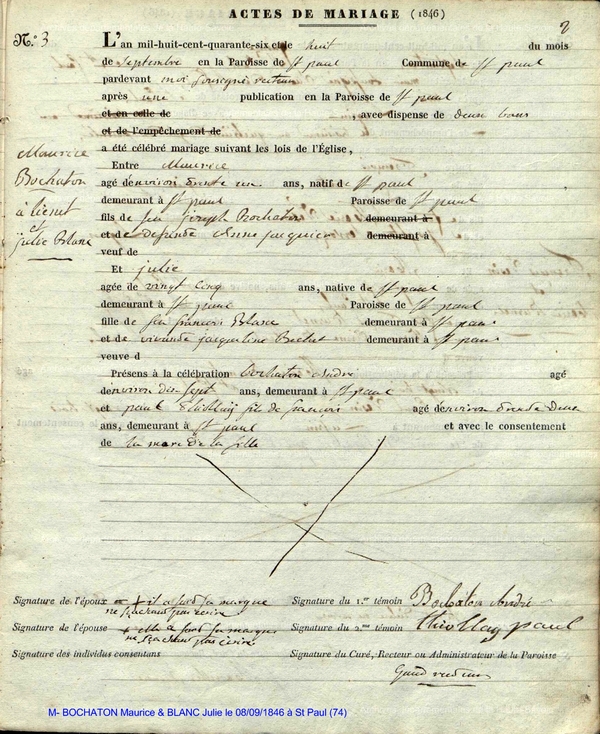 ACTES DE MARIAGE (1846)
2
N.° 3
L'an mil-huit-cent-quarante-six et le huit du mois
de Septembre en la Paroisse de St paul Commune de St paul
pardevant moi soussigné recteur
après une publication en la Paroisse de St paul
et en celle de , avec dispense de deux bans
et de l'empêchement de
a été célébré mariage suivant les lois de l'Église,
Maurice
Bochaton
à
et
julie Blanc
Entre Maurice
agé denviron trente un ans, natif de St paul
demeurant à St paul Paroisse de St paul
fils de feu joseph Bochaton demeurant à
et de defunte Anne jacquier demeurant à
veuf de
Et julie
agée de vingt cinq ans, native de St paul
demeurant à St paul Paroisse de St paul
fille de feu francois Blanc demeurant à St paul
et de vivante jacqueline demeurant à St paul
veuve d
Présens à la célébration bochaton andré agé
denviron dix sept ans, demeurant à St paul
et paul fils de francois agé denviron trente deux
ans, demeurant à St paul et avec le consentement
de la mere de la fille
Signature de l'époux + il a fait sa marque
ne sachant pas ecrire
Signature du 1.er témoin Bochaton André
Signature de l'épouse + elle a fait sa marque
ne sachant pas ecrire
Signature du 2.me témoin paul
Signature des individus consentans
Signature du Curé, Recteur ou Administrateur de la Paroisse
recteur
M- BOCHATON Maurice & BLANC Julie le 08/09/1846 à St Paul (74)